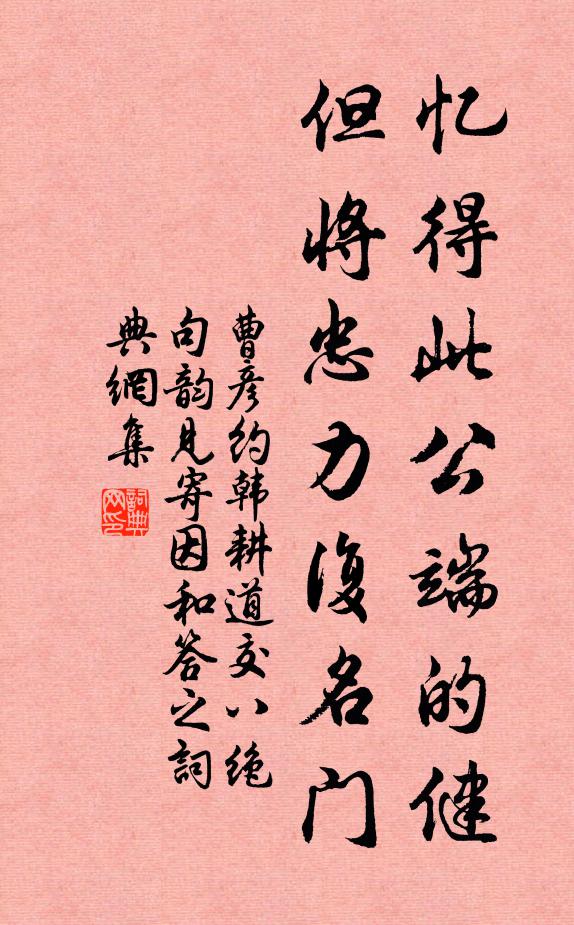 忆得此公端的健
但将忠力复名门
曹彦约韩耕道交八绝
句韵见寄因和答之詞
典網集
詞典网印